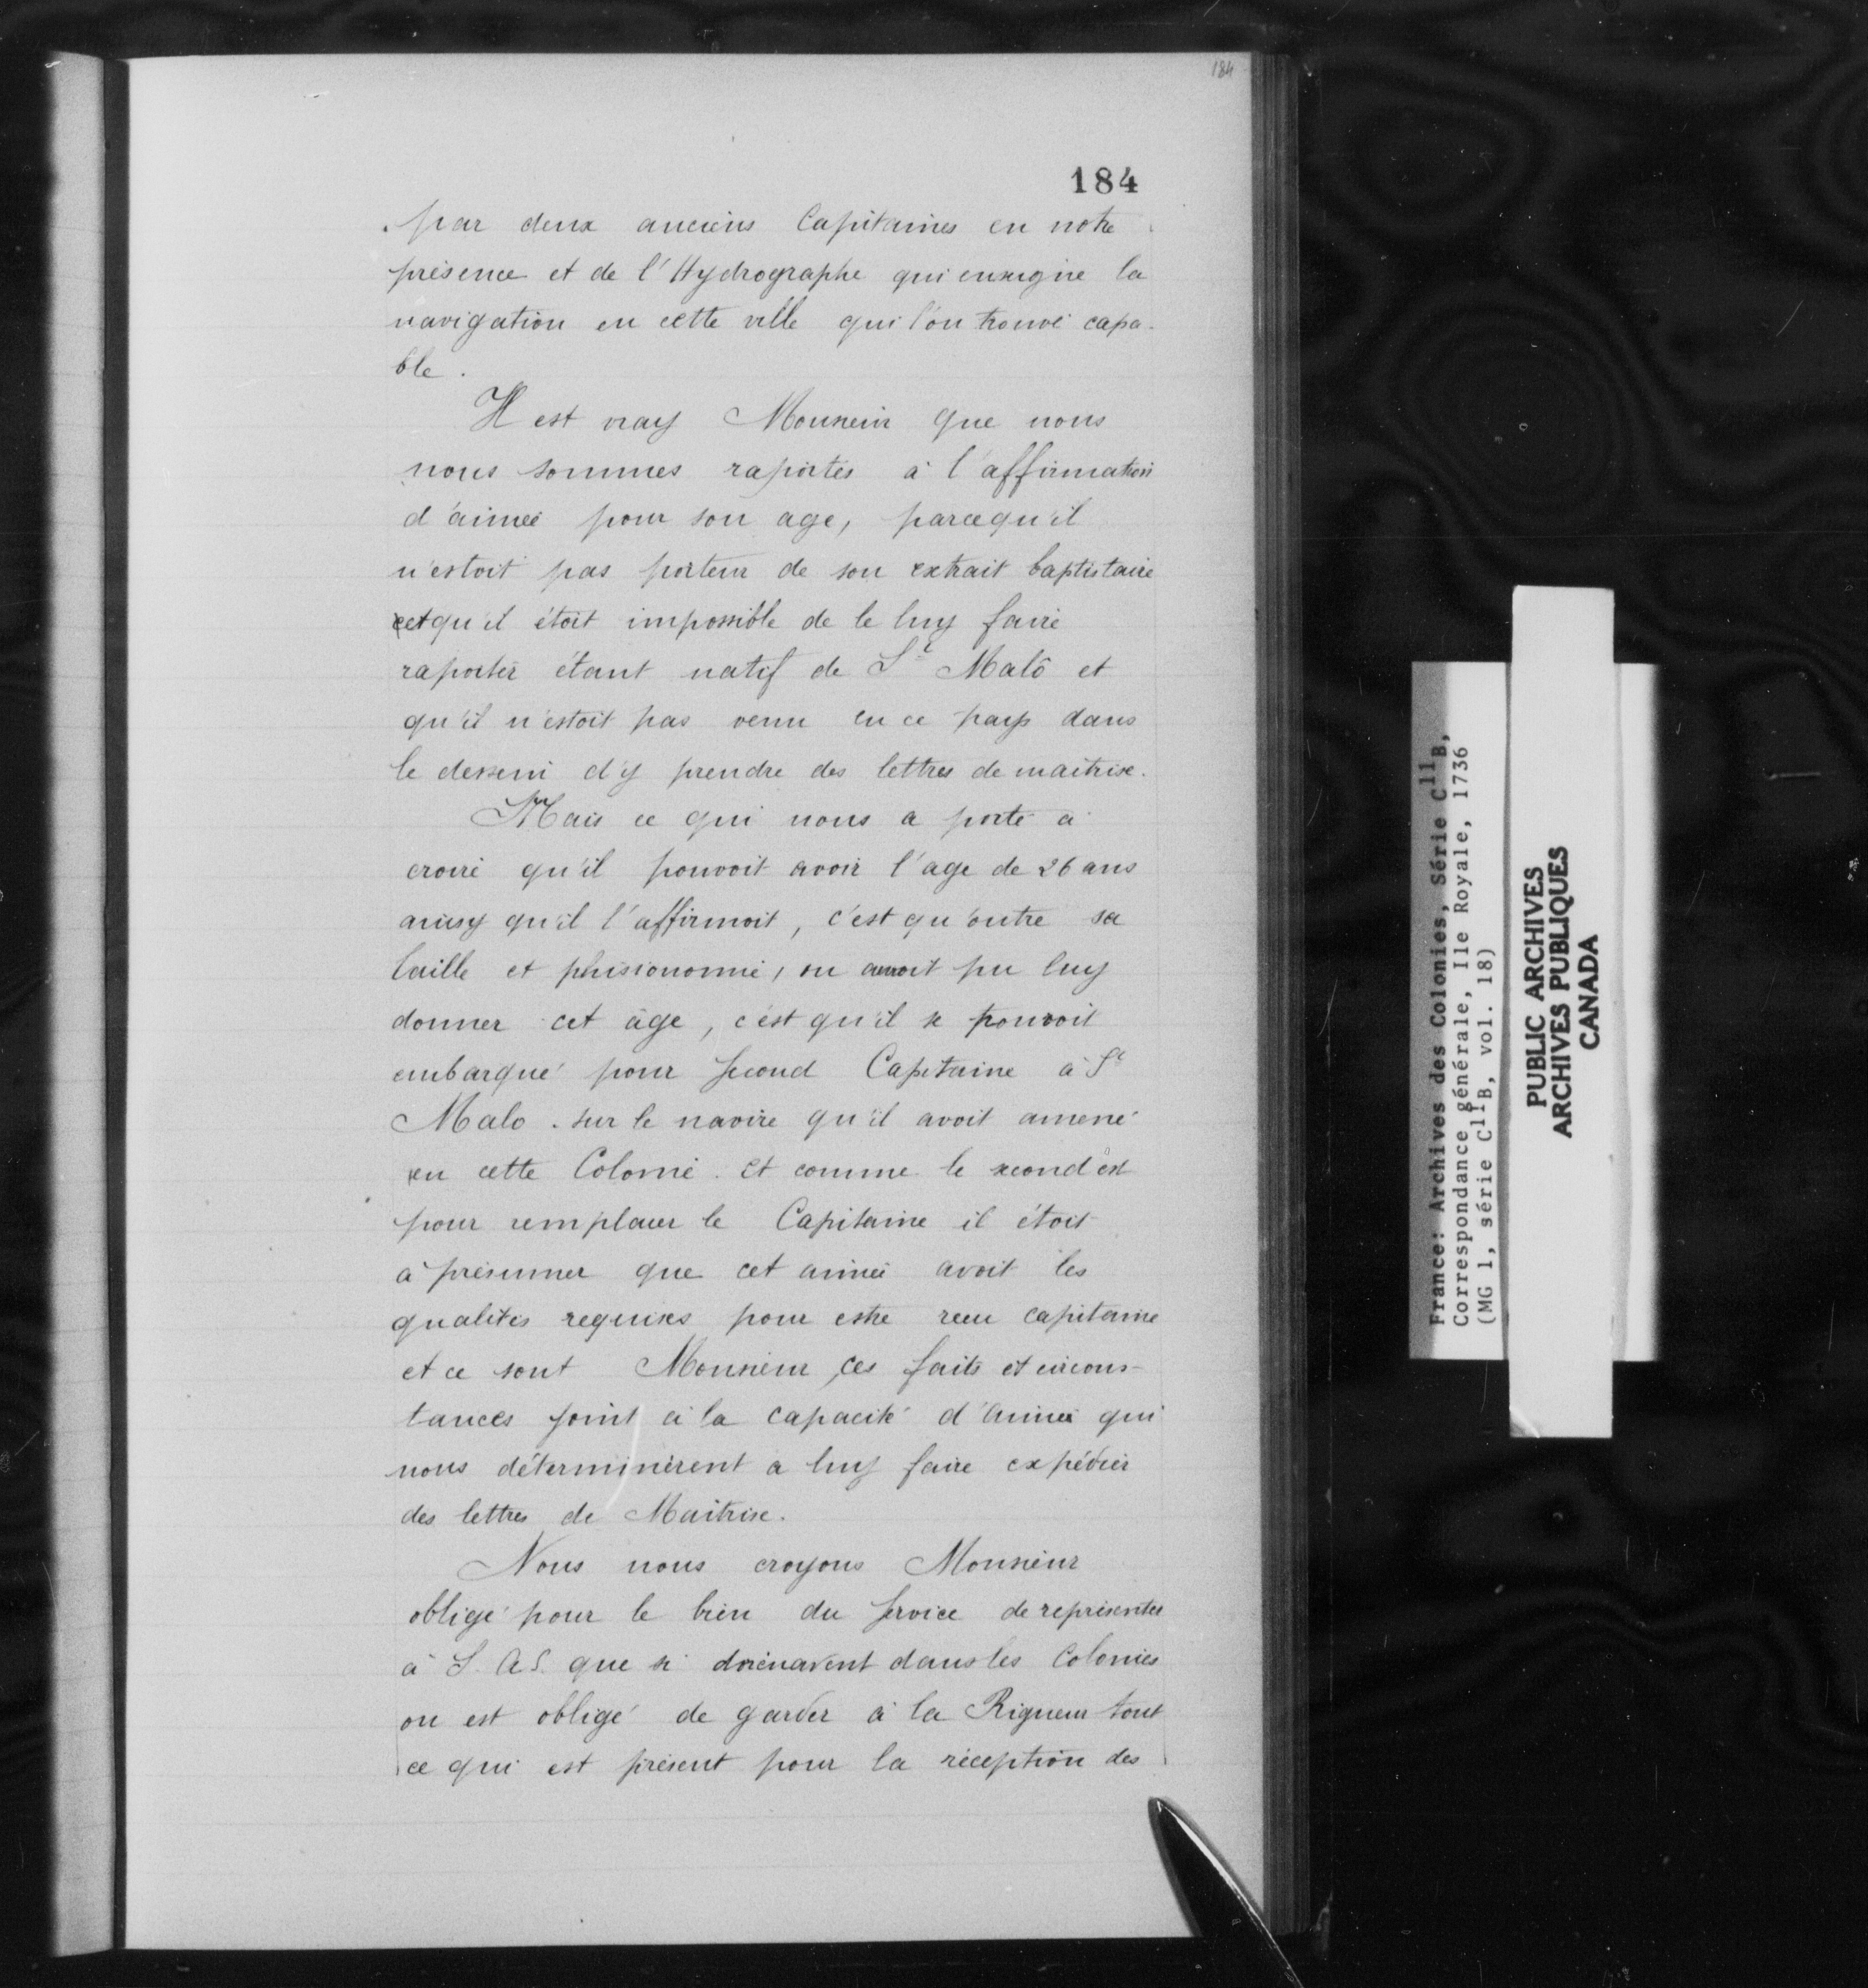 184
184
par deux anciens Capitaines en notre
présence et de l'Hydrographe qui enseigne la
navigation en cette ville qui l'on trouvé capa-
ble.
Il est vray Monsieur que nous
nous sommes raportés à l'affirmation
d'aimée pour son age, parcequ'il
n'estoit pas porteur de son extrait baptistaire
et qu'il étoit impossible de le luy faire
raporter étant natif de St Malô et
qu'il n'estoit pas venu en ce pays dans
le dessein d'y prendre des lettres de maitrise.
Mais ce qui nous a porté a
croire qu'il pouvoit avoir l'age de 26 ans
ainsy qu'il l'affirmoit, c'est qu'outre sa
taille et phisionomie, on auroit pu luy
donner cet âge, c'est qu'il se trouvoit
embarqué pour second Capitaine à St
Malo sur le navire qu'il avoit amené
en cette Colonie. Et comme le second est
pour remplacer le Capitaine il étoit
à présumer que cet aimée avoit les
qualités requises pour estre receu capitaine
et ce sont Monsieur ces faits et circons-
tances joint à la capacité d'aimée qui
nous déterminèrent a luy faire expédier
des lettres de Maitrise.
Nous nous croyons Monsieur
obligé pour le bien du service de représenter
à S. A. S. que si dorénavent dans les Colonies
on est obligé de garder à la Rigueur tout
ce qui est présent pour la réception des
France: Archives des Colonies, Série C11B,
Correspondance générale, Ile Royale, 1736
(MG 1, série C11B, vol. 18)
PUBLIC ARCHIVES
ARCHIVES PUBLIQUES
CANADA